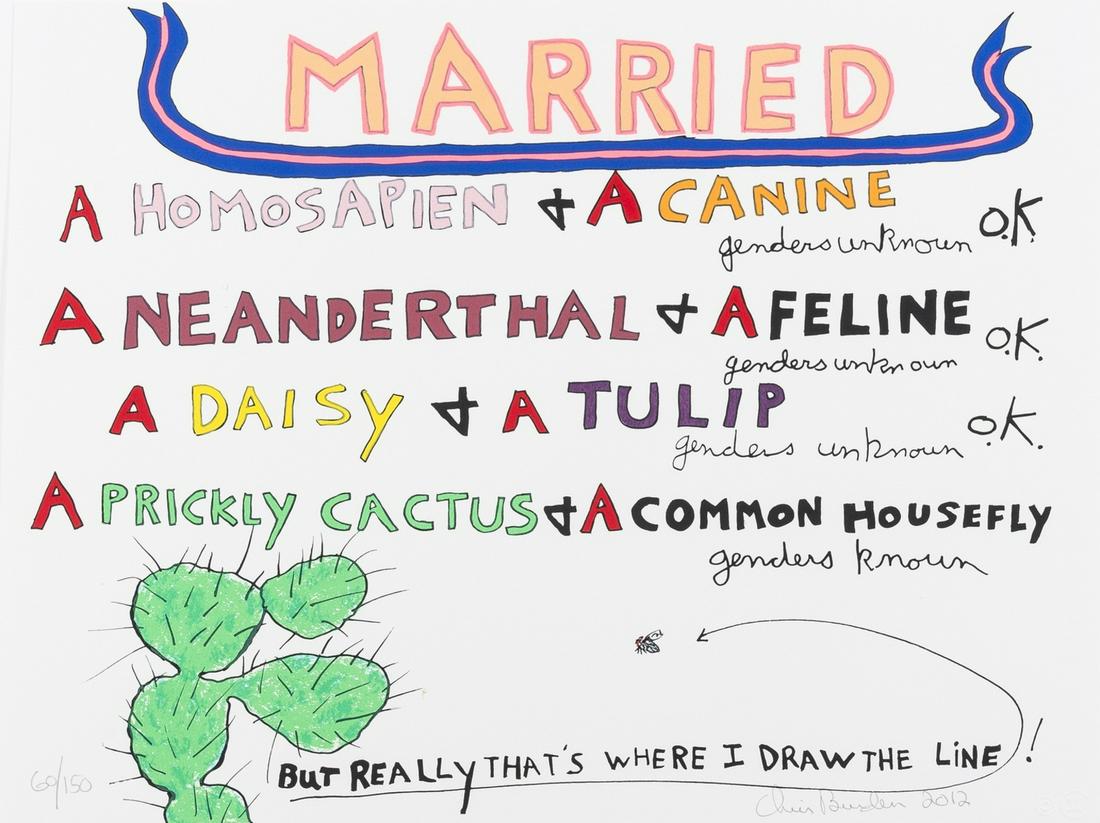 MARRIED
A HOMOSAPIEN & A CANINE
genders unknown O.K.
A NEANDERTHAL & A FELINE
genders unknown O.K.
A DAISY & A TULIP
genders unknown O.K.
A PRICKLY CACTUS & A COMMON HOUSEFLY
genders known
BUT REALLY THAT'S WHERE I DRAW THE LINE!
60/150
Chris Burden 2012